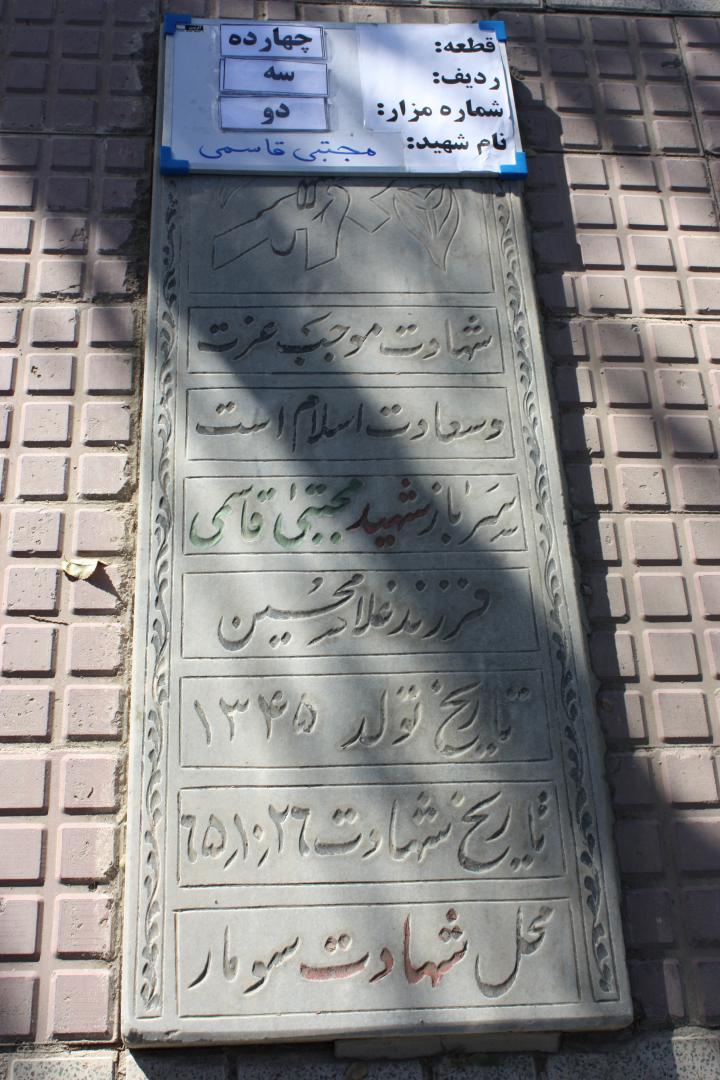 قطعه: چهارده
ردیف: سه
شماره مزار: دو
نام شهید: مجتبی قاسمی
شهادت موجب عزت
وسعادت اسلام است
سرباز شهید مجتبیٰ قاسمی
فرزند غلامحسین
تاریخ تولد ۱۳۴۵
تاریخ شهادت ۶۵٫۱۰٫۲۶
محل شهادت سومار